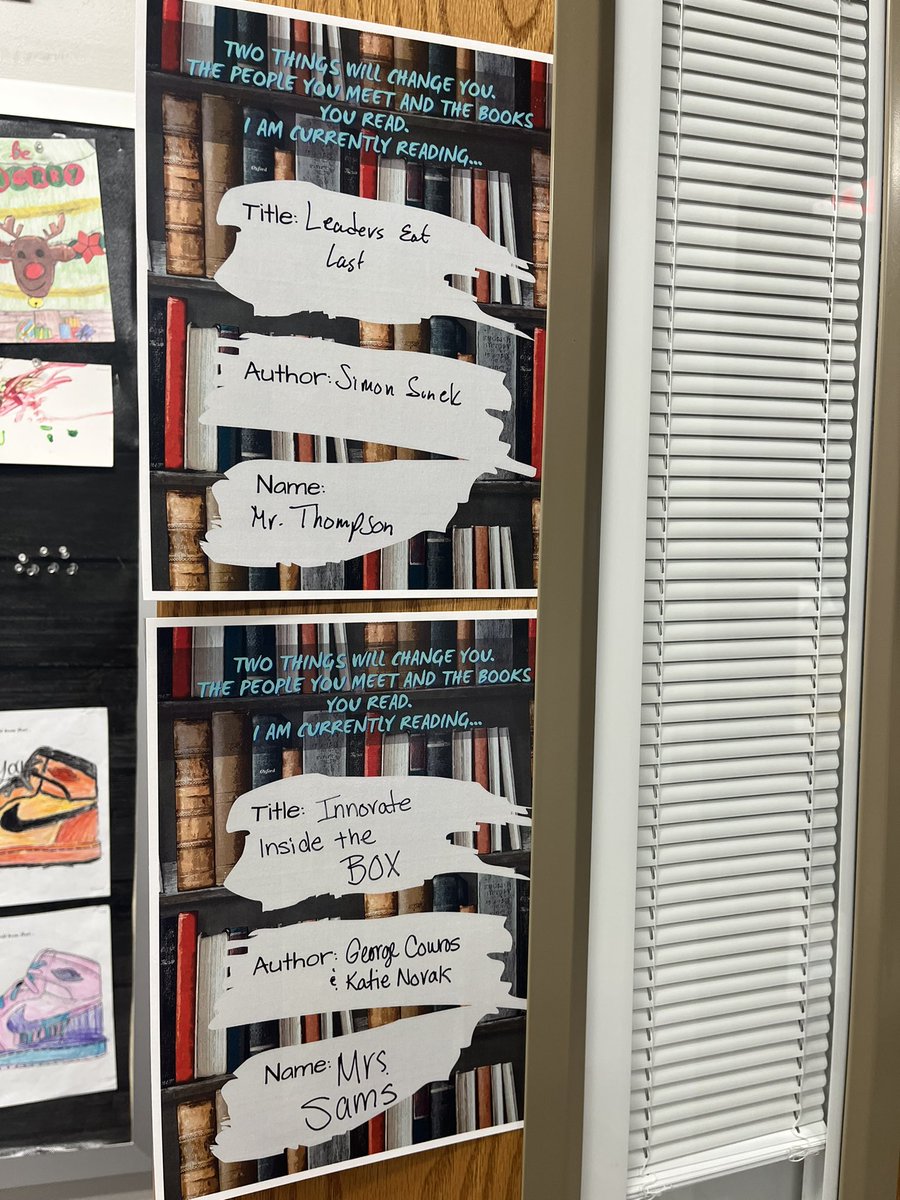 TWO THINGS WILL CHANGE YOU.
THE PEOPLE YOU MEET AND THE BOOKS
YOU READ.
I AM CURRENTLY READING...
Title: Leaders Eat
Last
Author: Simon Sinek
Name:
Mr. Thompson
be
MERRY
TWO THINGS WILL CHANGE YOU.
THE PEOPLE YOU MEET AND THE BOOKS
YOU READ.
I AM CURRENTLY READING...
Oxford
Title: Innovate
Inside the
BOX
Author: George Couros
& Katie Novak
Name: Mrs.
Sams